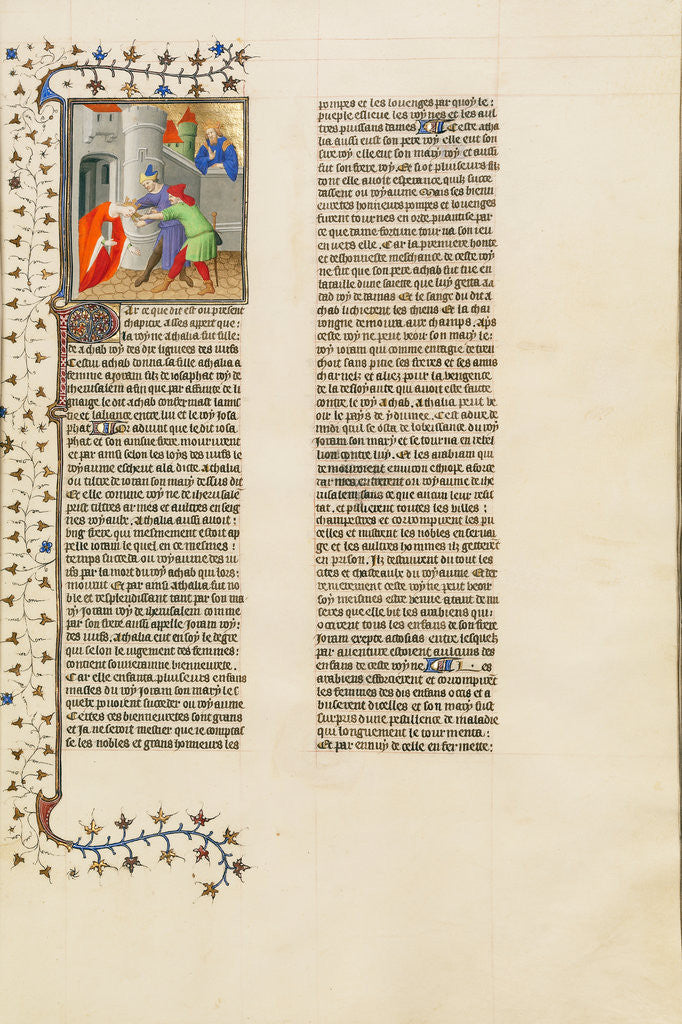 Par ce que dit est ou present
chapitre asses appert que :
la royne athalia fut fille :
de achab roy des dix lignees des iuifs
Cestui achab donna sa fille athalia a
femme a joram filz de iosaphat roy de
iherusalem afin que par affinite de li
gnaige le dit achab confermast lamic
tie et laliance entre lui et le roy iosa
phat Or aduint que le dit iosa
phat et son ainsne frere moururent
et par ainsi selon les loys des iuifs le
royaume escheut a la dicte athalia
ou tiltre de ioram son mary dessus dit
Et elle comme royne de iherusale
prist tiltres armes et aultres enseig
nes royaulx. Athalia aussi auoit :
ung frere qui mesmement estoit ap
pelle ioram le quel en ce mesmes :
temps succeda ou royaume des iu
ifs par la mort du roy achab qui lors :
mourut Et par ainsi athalia fut no
ble et resplendissant tant par son ma
ry joram roy de iherusalem comme
par son frere aussi appelle joram roy :
des iuifs. Athalia eut en soy le degre
qui selon le iugement des femmes :
contient souueraine bieneurete.
Car elle enfanta pluseurs enfans
masles du roy joram son mary les
quelx pouoient succeder ou royaume
Certes ces bieneuretes sont grans
et ja ne seroit mestier que ie comptas
se les nobles et grans honneurs les
pompes et les louenges par quoy le :
pueple esleue les roynes et les aul
tres puissans dames Ceste atha
lia aussi eust son pere roy elle eut son
frere roy elle eut son mary roy et aussi
fut son frere roy. Et si ot pluseurs filz
dont elle auoit esperance quilz succe
dassent ou royaume Mais ses bieneu
euretes honneurs pompes et louenges
furent tournes en orde puantise par
ce que dame fortune tourna son ieu
enuers elle. Car la premiere honte
et deshonneste meschance de ceste royne
ne fut que son pere achab fut tue en
bataille dune saiette que luy getta aa
dad roy de damas Et le sange du dit a
chab licherent les chiens Et la cha
rongne demoura aux champs. Aps
ceste royne peut veoir son mary le :
roy ioram qui comme enragie detren
choit sans pitie ses freres et ses amis
charnelz et aliez pour la vengence
de la desloyaute qui auoit este faicte
contre le roy achab. Athalia peut ve
oir le pays de ydumee. Cest a dire de
midi qui se osta de lobeissance du roy
joram son mary et se tourna en rebel
lion contre luy. Et les arabiam qui
demouroient enuiron ethiope a force
darmes entrerent ou royaume de ihe
rusalem sans ce que aucun leur resis
tat. et pillierent toutes les villes :
champestres et corrompirent les pu
celles et mistrent les nobles en seruai
ge et les aultres hommes ilz getterent
en prison. Ilz destruirent du tout les
cites et chasteaulx du royaume Et der
renierement ceste royne peut veoir
soy mesmes estre venue a tant de mi
seres que elle vit les arabiens qui :
occirent tous les enfans de son frere
Joram excepte actosias entre lesquelx
par auenture estoient aulcuns des
enfans de ceste royne Les
arabiens efforcierent et corrompirent
les femmes des dis enfans occis et a
buserent dicelles et son mary fust
surpris dune pestillence de maladie
qui longuement le tourmenta :
Et par ennuy de celle enfermete :